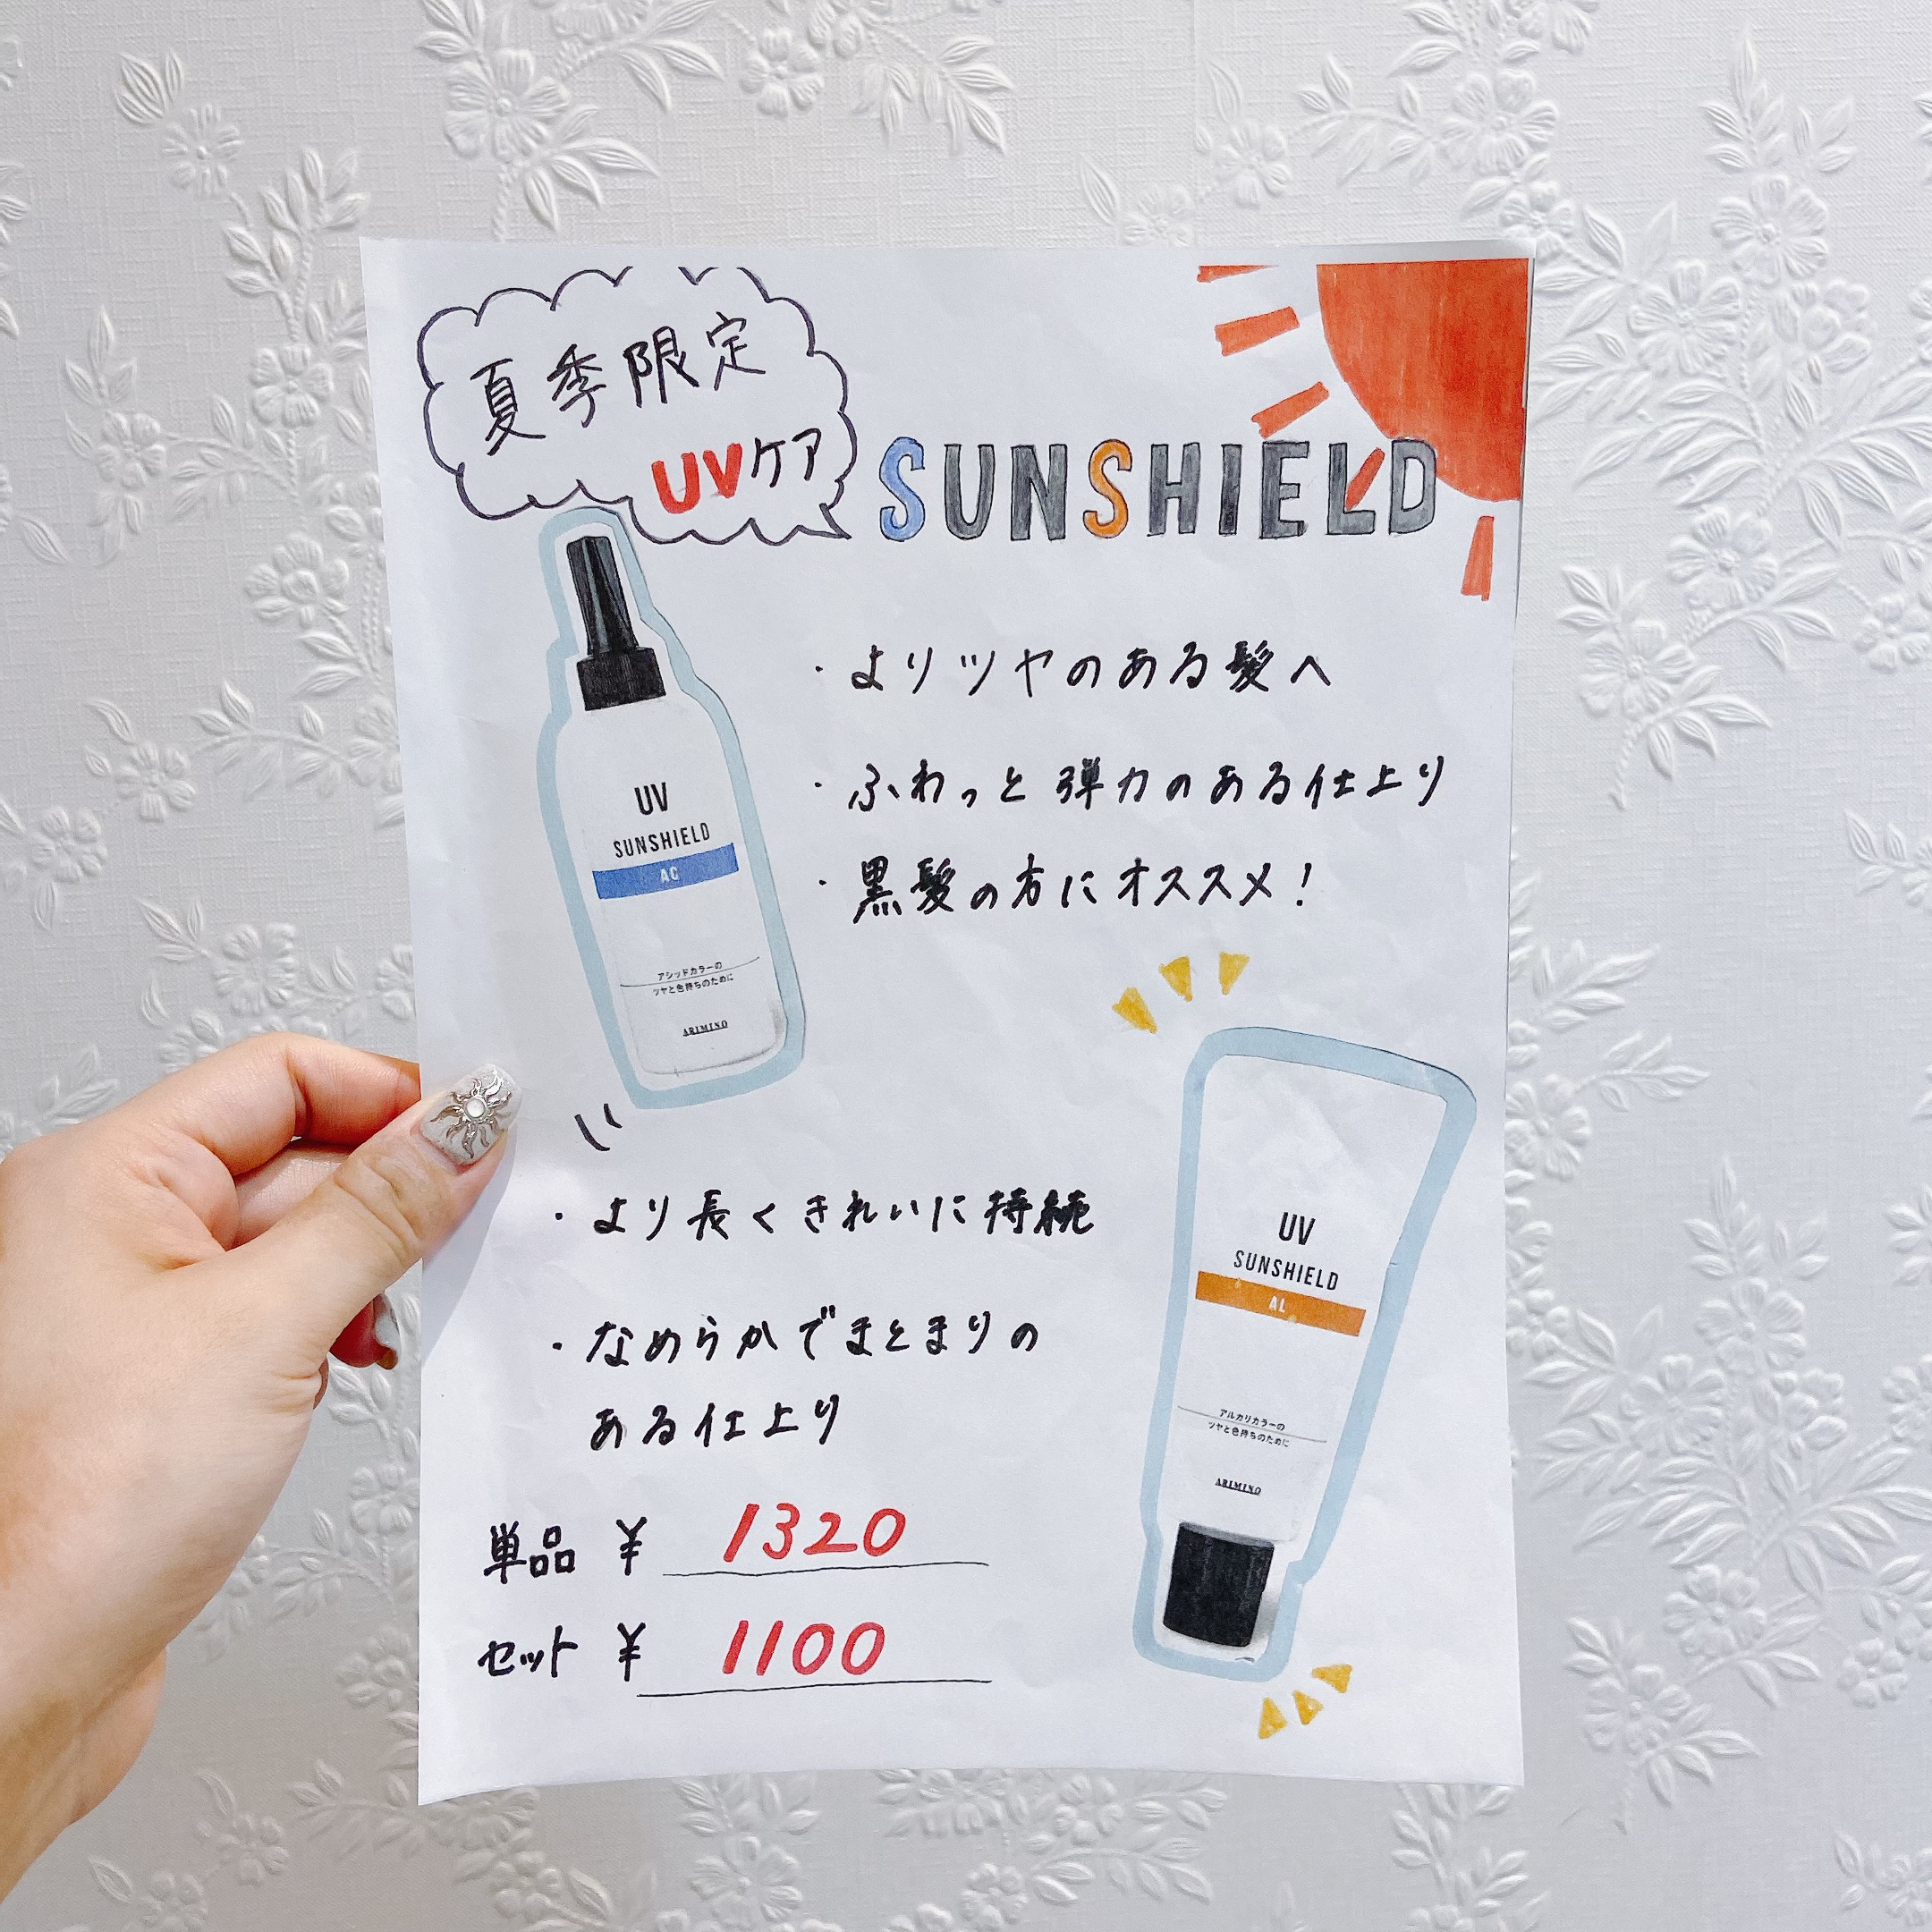 夏季限定
UVケア
SUNSHIELD
・よりツヤのある髪へ
・ふわっと弾力のある仕上り
・黒髪の方にオススメ!
UV
SUNSHIELD
AC
アシッドカラーの
ツヤと色持ちのために
ARIMINO
・より長くきれいに持続
・なめらかでまとまりの
ある仕上り
UV
SUNSHIELD
AL
アルカリカラーの
ツヤと色持ちのために
ARIMINO
単品 ¥ 1320
セット ¥ 1100